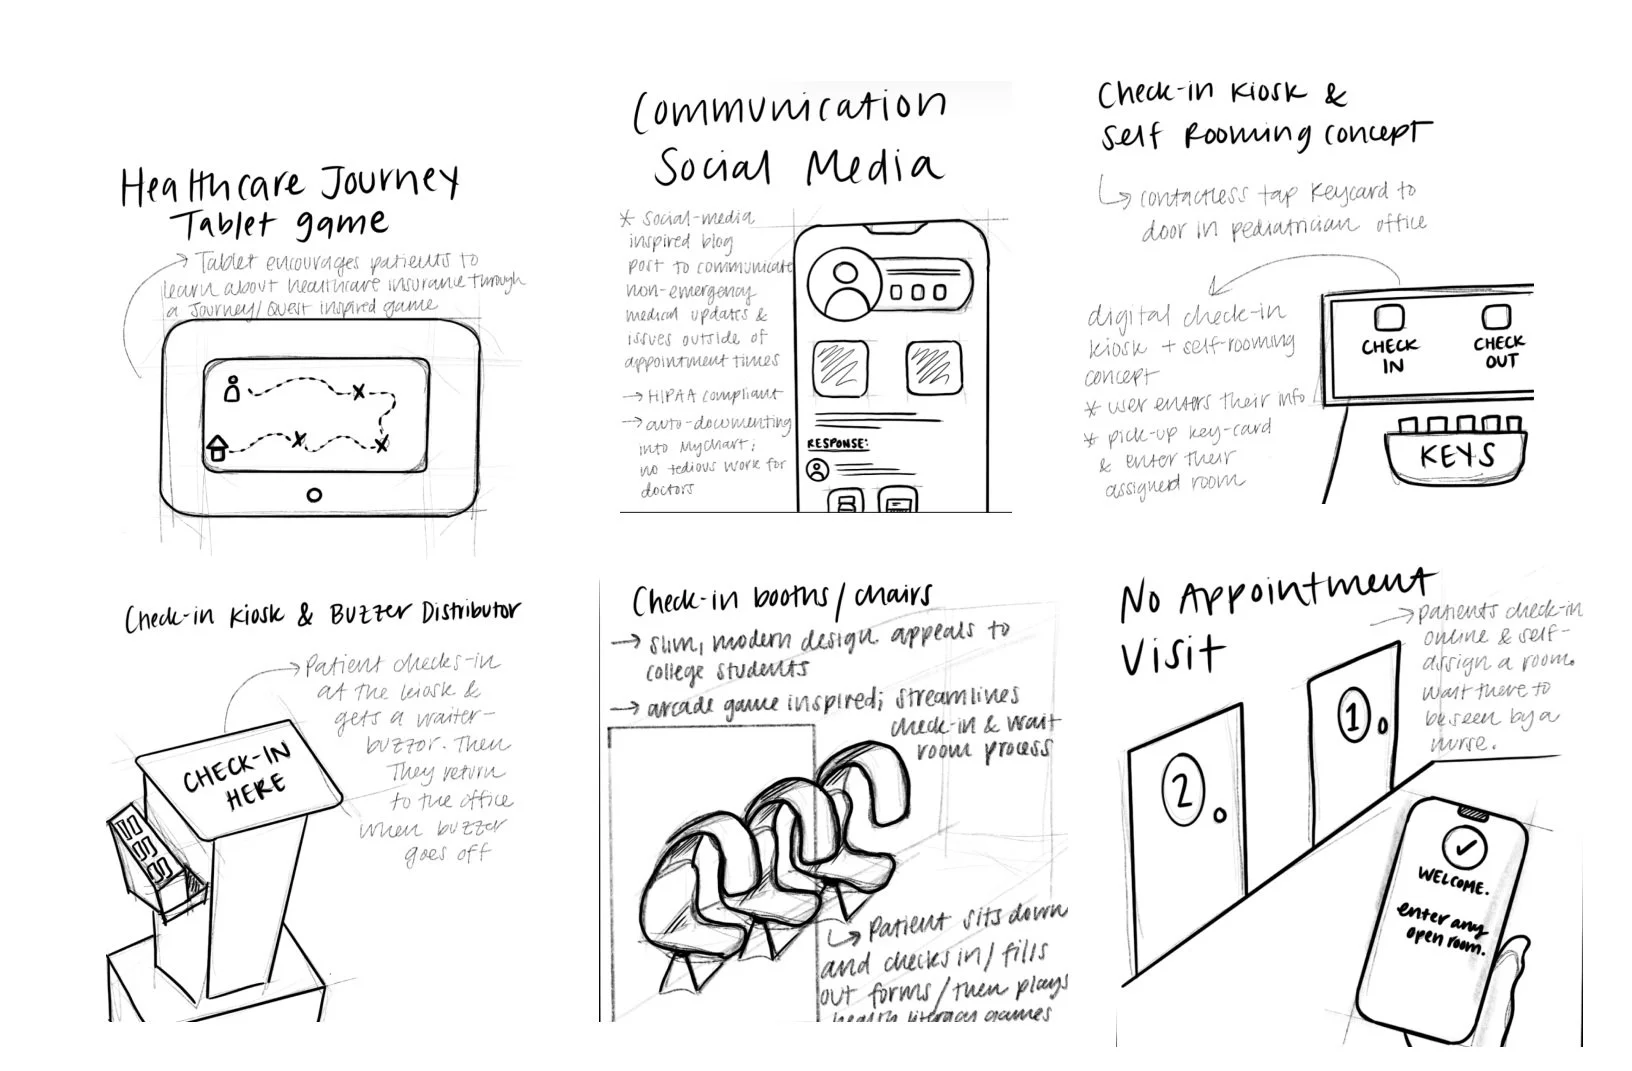 Healthcare Journey
Tablet game
Tablet encourages patients to
learn about healthcare insurance through
a Journey/Quest inspired game
Communication
Social Media
* social-media
inspired blog
post to communicate
non-emergency
medical updates &
issues outside of
appointment times
→ HIPAA compliant
→ auto-documenting
into MyChart;
no tedious work for
doctors
RESPONSE:
Check-in Kiosk &
Self Rooming Concept
contactless tap keycard to
door in pediatrician office
digital check-in
kiosk + self-rooming
concept
* user enters their info
* pick-up key-card
& enter their
assigned room
CHECK
IN
CHECK
OUT
KEYS
Check-in Kiosk & Buzzer Distributor
Patient checks-in
at the kiosk &
gets a waiter-
buzzor. Then
They return
to the office
when buzzer
goes off
CHECK-IN
HERE
Check-in booths/chairs
→ slim, modern design appeals to
college students
→ arcade game inspired; streamlines
check-in & wait
room process
Patient sits down
and checks in/fills
out forms/then plays
health literacy games
No Appointment
Visit
patients check-in
online & self-
assign a room.
wait there to
be seen by a
nurse.
2
1
WELCOME.
enter any
open room.